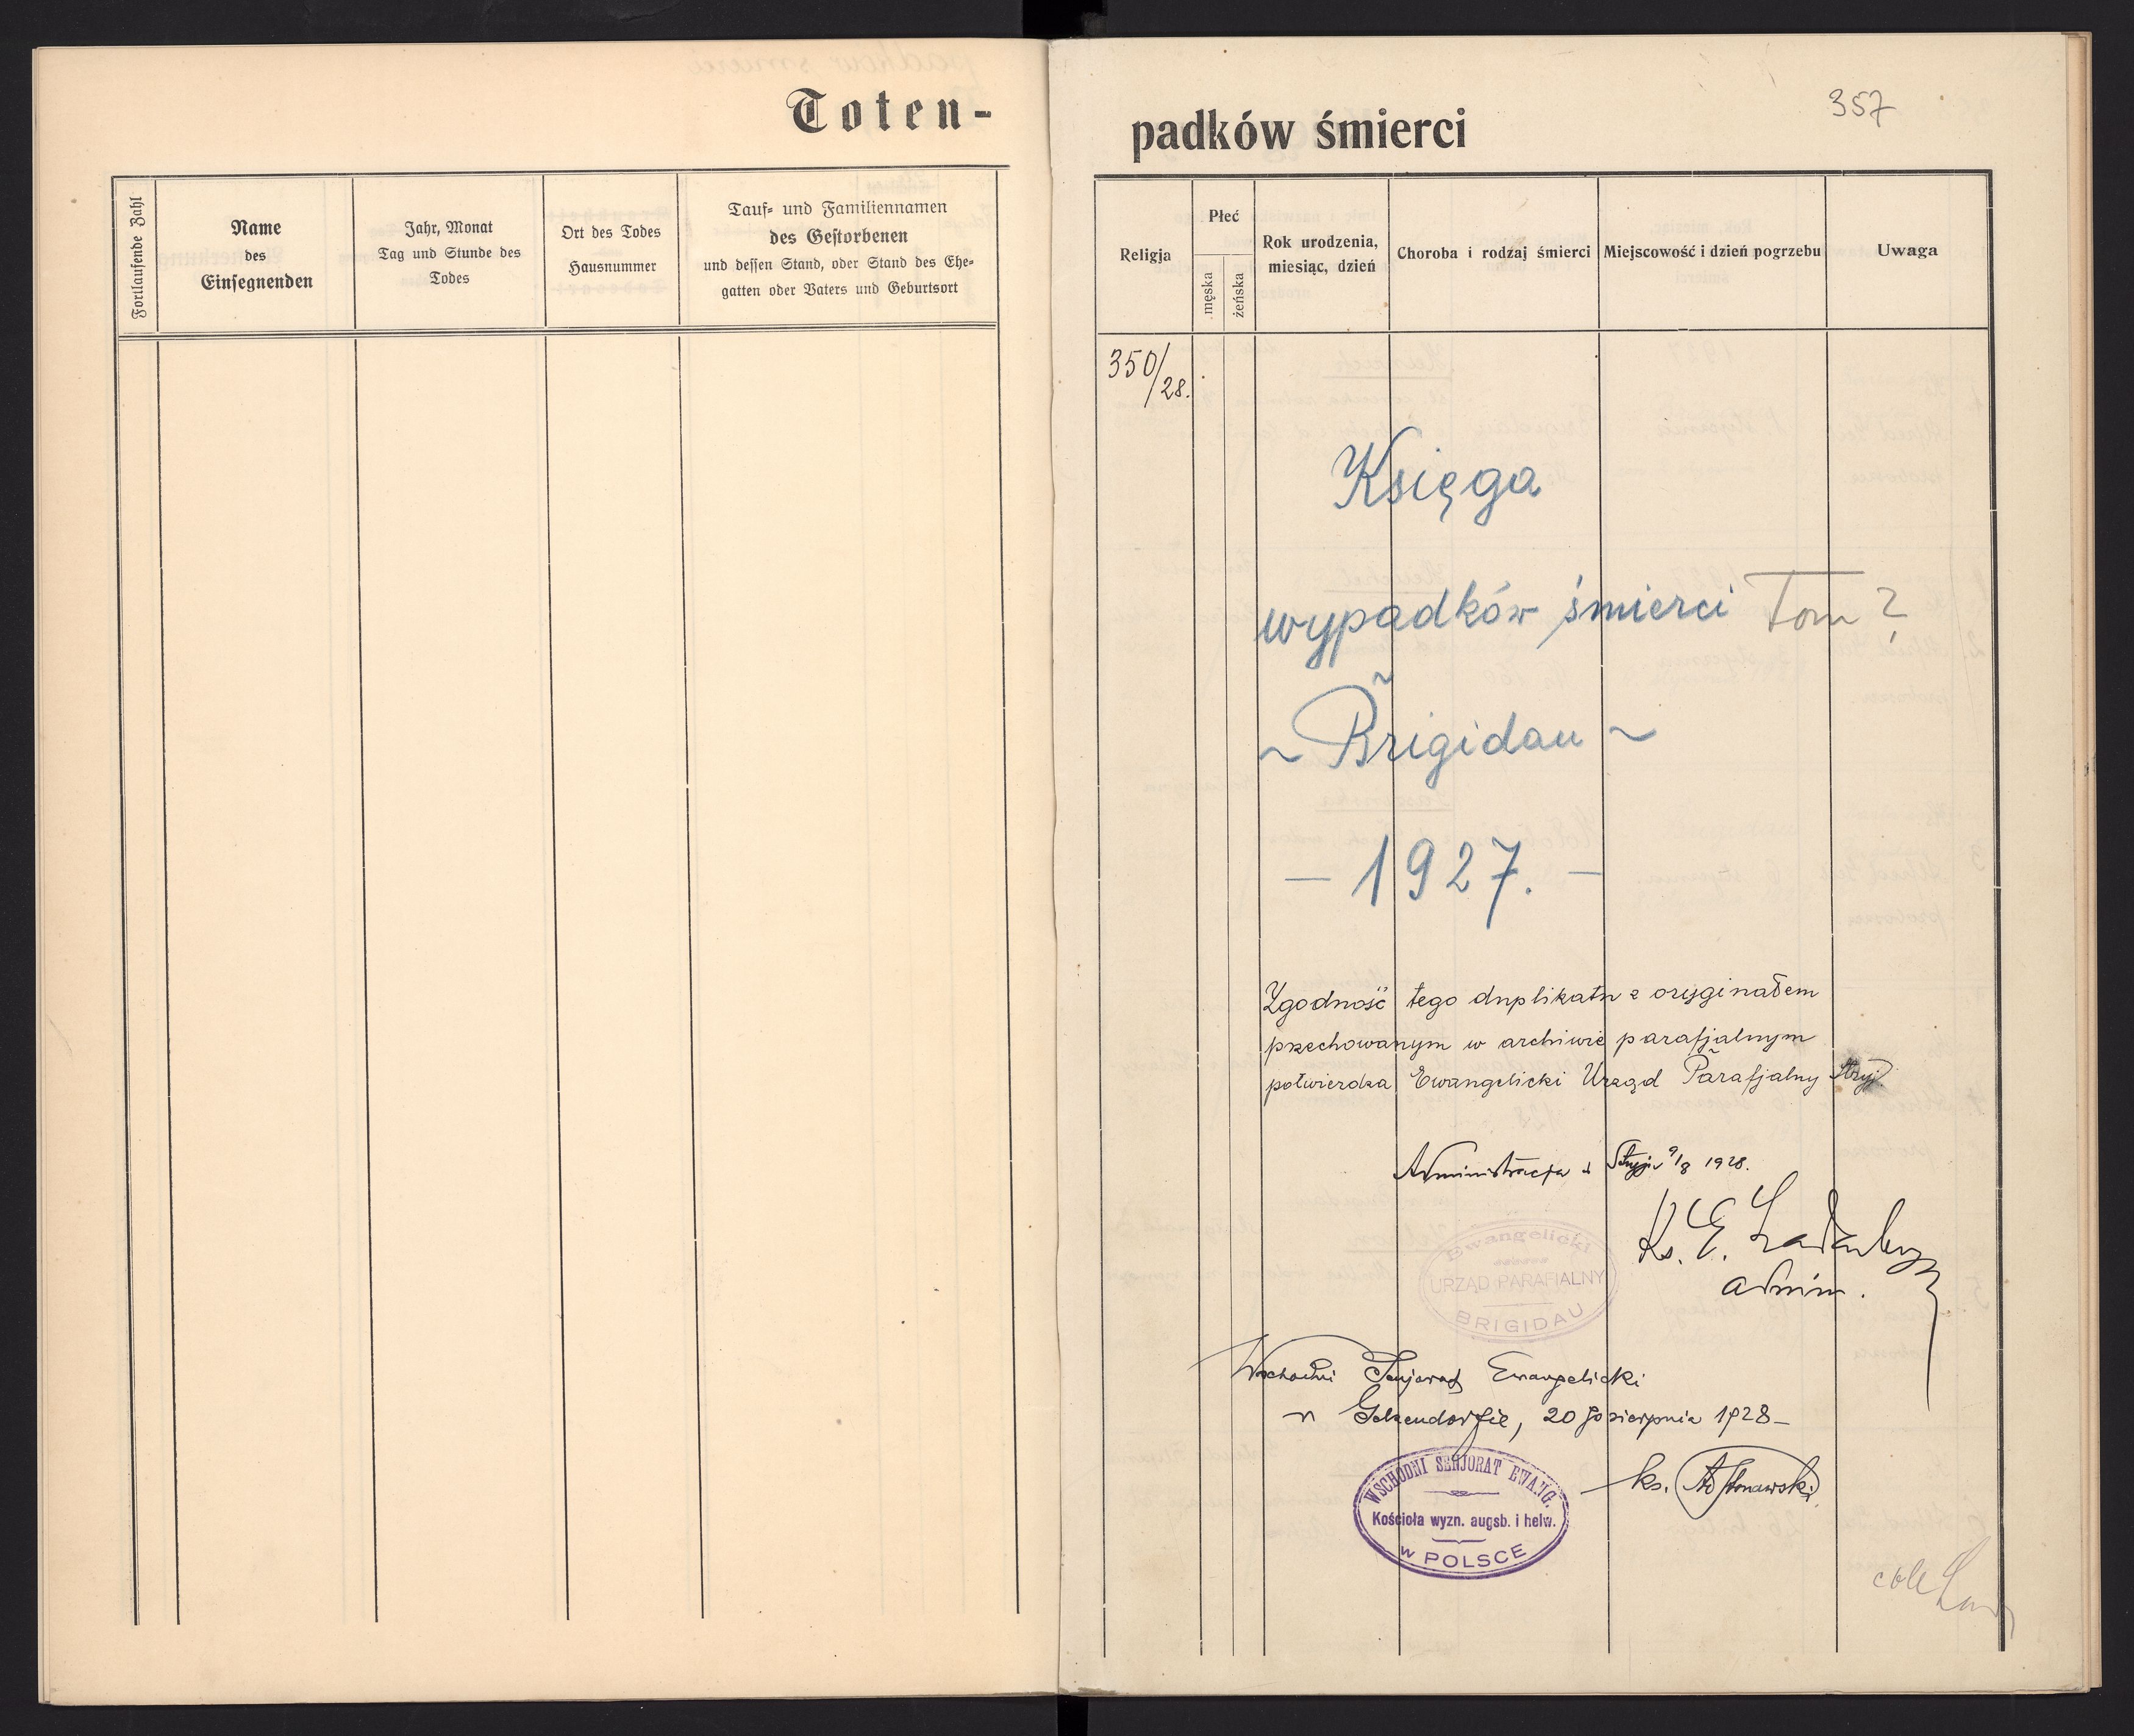 Toten-
Fortlaufende Zahl
Name
des
Einsegnenden
Jahr, Monat
Tag und Stunde des
Todes
Ort des Todes
Hausnummer
Tauf- und Familiennamen
des Gestorbenen
und dessen Stand, oder Stand des Ehe-
gatten oder Vaters und Geburtsort
357
padków śmierci
Religja
Płeć
męska
żeńska
Rok urodzenia,
miesiąc, dzień
Choroba i rodzaj śmierci
Miejscowość i dzień pogrzebu
Uwaga
350/28.
Księga
wypadków śmierci Tom ?
~ Brigidau ~
— 1927. —
Zgodność tego duplikatu z oryginałem
przechowanym w archiwie parafjalnym
potwierdza Ewangelicki Urząd Parafjalny Stryj
Administracja Stryj 9/8 1928.
Ks. E.
admin.
Ewangelicki
URZĄD PARAFIALNY
BRIGIDAU
Wschodni Senjorat Ewangelicki
w Gelsendorfie, 20go sierpnia 1928 —
ks.
WSCHODNI SENJORAT EWANG.
Kościoła wyzn. augsb. i helw.
w POLSCE